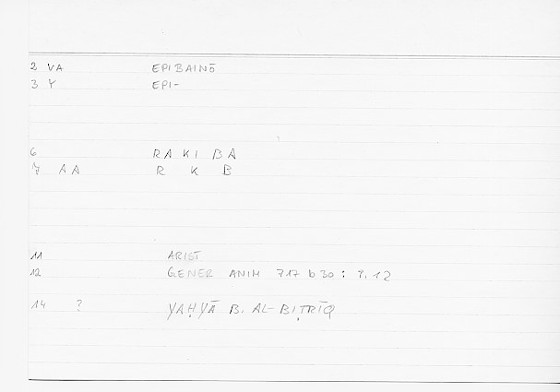 2 VA EPIBAINŌ
3 Y EPI-
6 RAKIBA
7 AA R K B
11 ARIST
12 GENER ANIM 717 b 30 : 7.12
14 ? YAḤYĀ B. AL-BIṬRĪQ